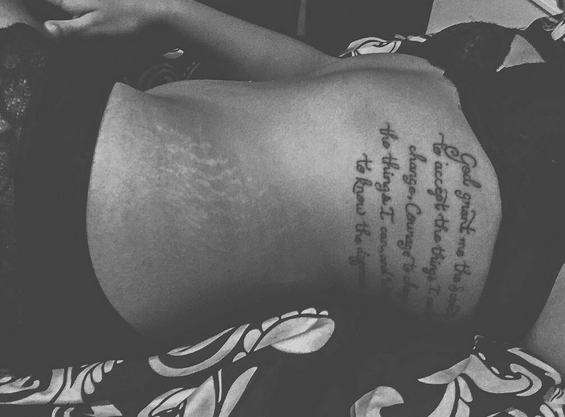 God grant me the
to accept the things I
change, Courage to
the things I can, and
to know the